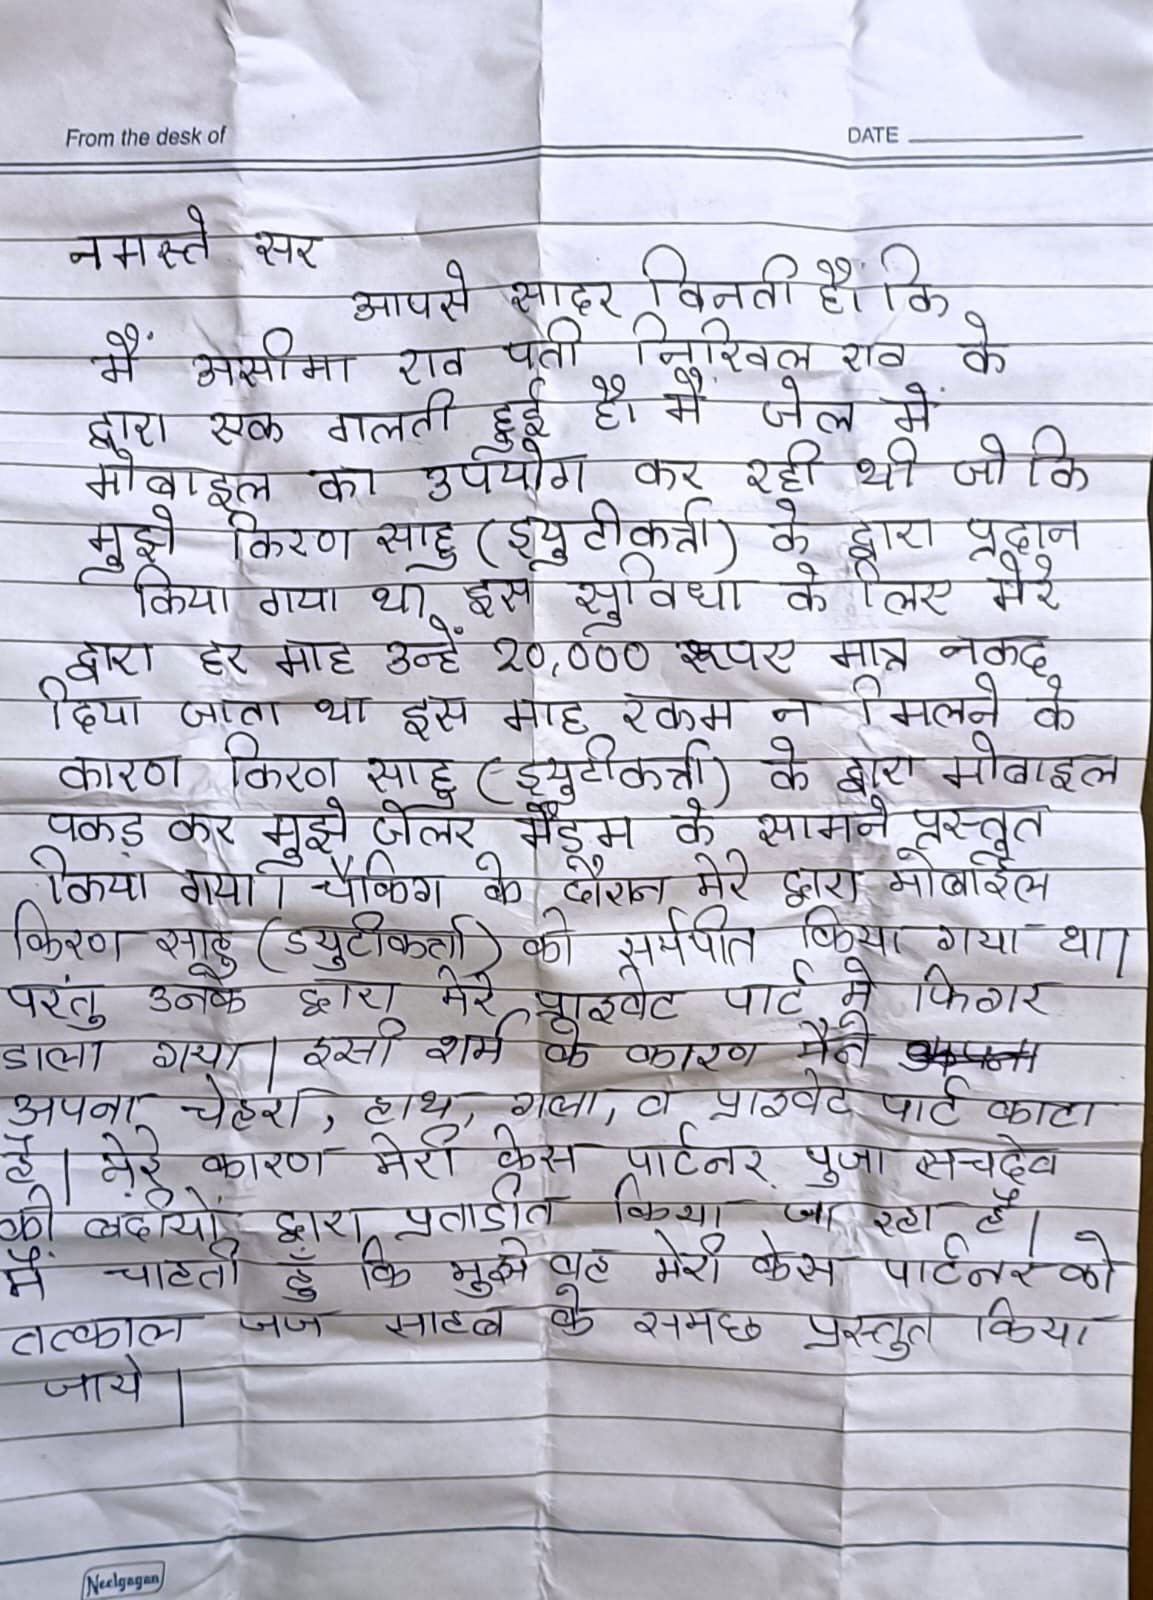 From the desk of
DATE
नमस्ते सर
आपसे सादर विनती है। कि
मैं असीमा राव पती निखिल राव के
द्वारा एक गलती हुई है। मैं जेल में
मोबाइल का उपयोग कर रही थी जो कि
मुझे किरण साहु (ड्युटीकर्त्ता) के द्वारा प्रदान
किया गया था, इस सुविधा के लिए मेरे
द्वारा हर माह उन्हें 20,000 रूपए मात्र नकद
दिया जाता था इस माह रकम न मिलने के
कारण किरण साहु (ड्युटीकर्त्ता) के द्वारा मोबाइल
पकड़ कर मुझे जेलर मैडम के सामने प्रस्तुत
किया गया। चैकिंग के दौरान मेरे द्वारा मोबाईल
किरण साहु (ड्युटीकर्ता) को सर्मपीत किया गया था।
परंतु उनके द्वारा मेरे प्राइवेट पार्ट मे फिंगर
डाला गया। इसी शर्म के कारण मैने अपना
अपना चेहरा, हाथ, गला, व प्राइवेट पार्ट काटा
है। मेरे कारण मेरी केस पार्टनर पुजा सचदेव
को बंदीयों द्वारा प्रताडीत किया जा रहा है।
मैं चाहती हुँ कि मुझे वह मेरी केस पार्टनर को
तत्काल जज साहब के समछ प्रस्तुत किया
जाये।
Neelgagan